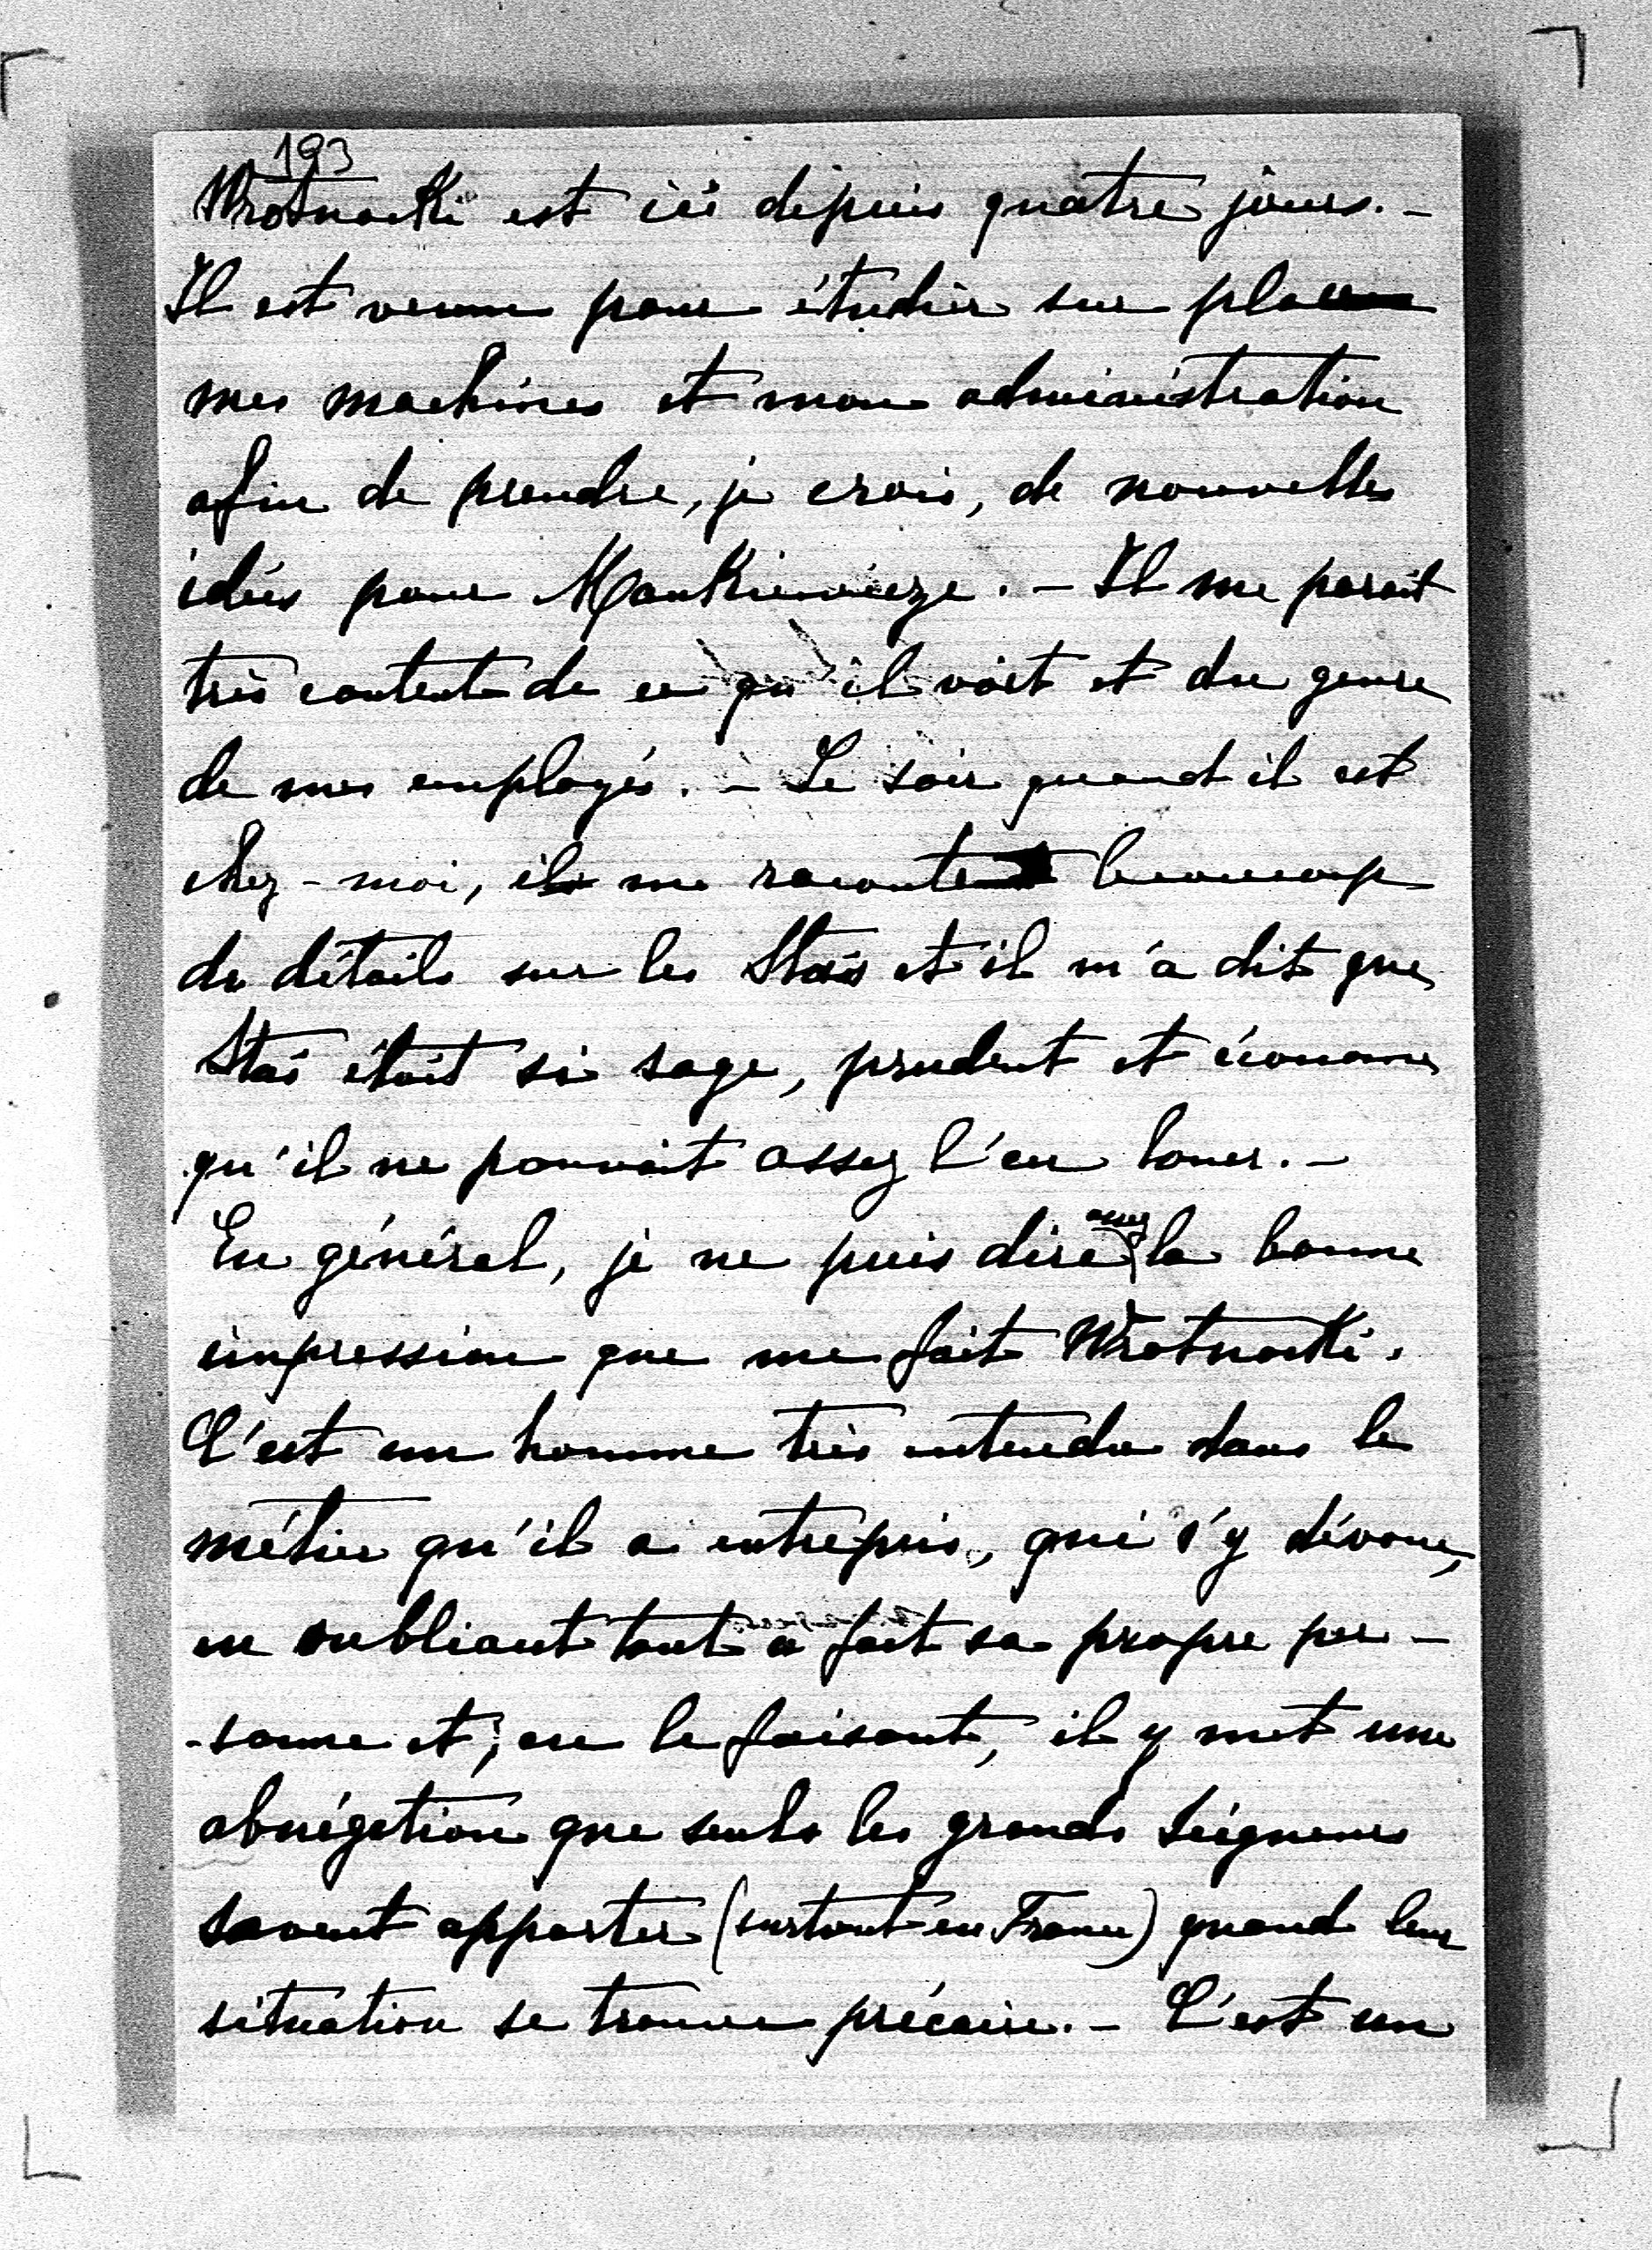 193
Wrotnocki est ici depuis quatre jours. -
Il est venu pour étudier sur place
mes machines et mon administration
afin de prendre, je crois, de nouvelles
idées pour Mankiewicze. - Il me parait
très content de ce qu'il voit et du genre
de mes employés. - Le soir quand il est
chez-moi, il me raconte beaucoup
de détails sur les Staś et il m'a dit que
Staś était si sage, prudent et économe
qu'il ne pouvait assez l'en louer. -
En général, je ne puis dire assez la bonne
impression que me fait Wrotnocki.
C'est un homme très entendu dans le
métier qu'il a entrepris, qui s'y dévoue,
en oubliant tout à fait sa propre per-
-sonne et, en le faisant, il y met une
abnégation que seuls les grands seigneurs
savent apporter (surtout en France) quand leur
situation se trouve précaire. - C'est un